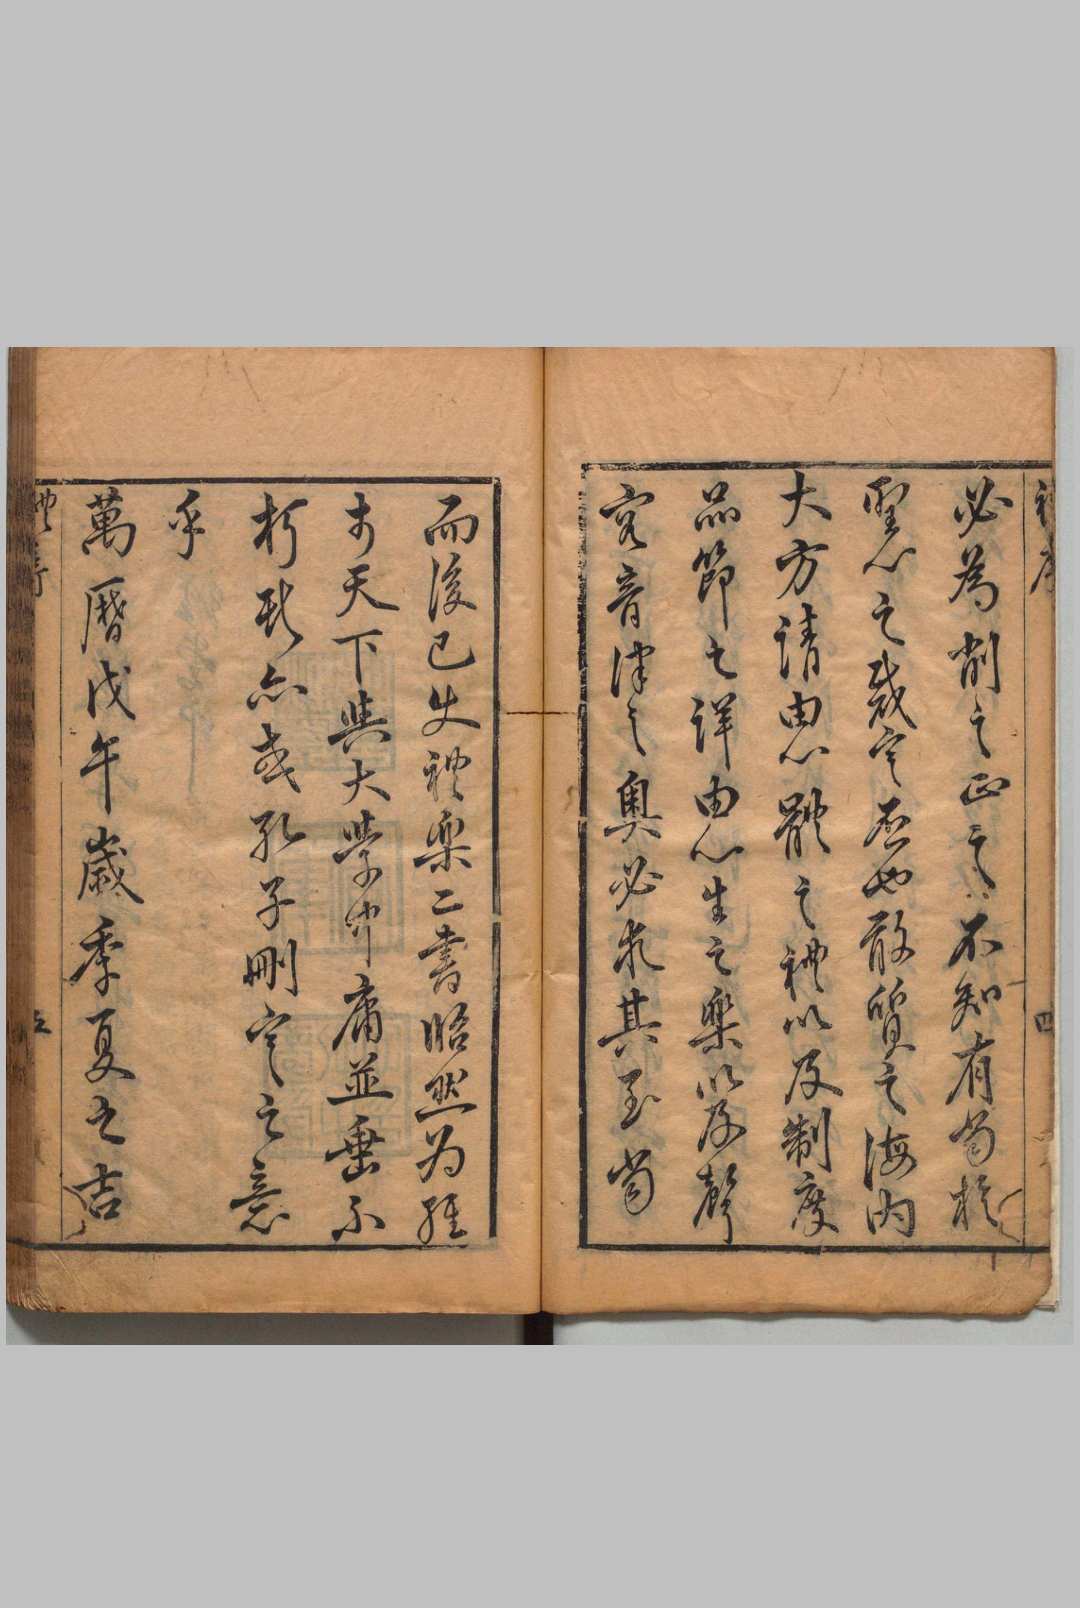 必為削之正之不知有當於
聖心之裁定否也敢質之海内
大方請由心體之禮以及制度
品節之詳由心生之樂以及聲
容音律之奧必求其至當
而後已使禮樂二書昭然为經
于天下與大學中庸並垂不
朽斯亦或孔子刪定之意
乎
萬曆戊午歲季夏之吉
禮序
四
五